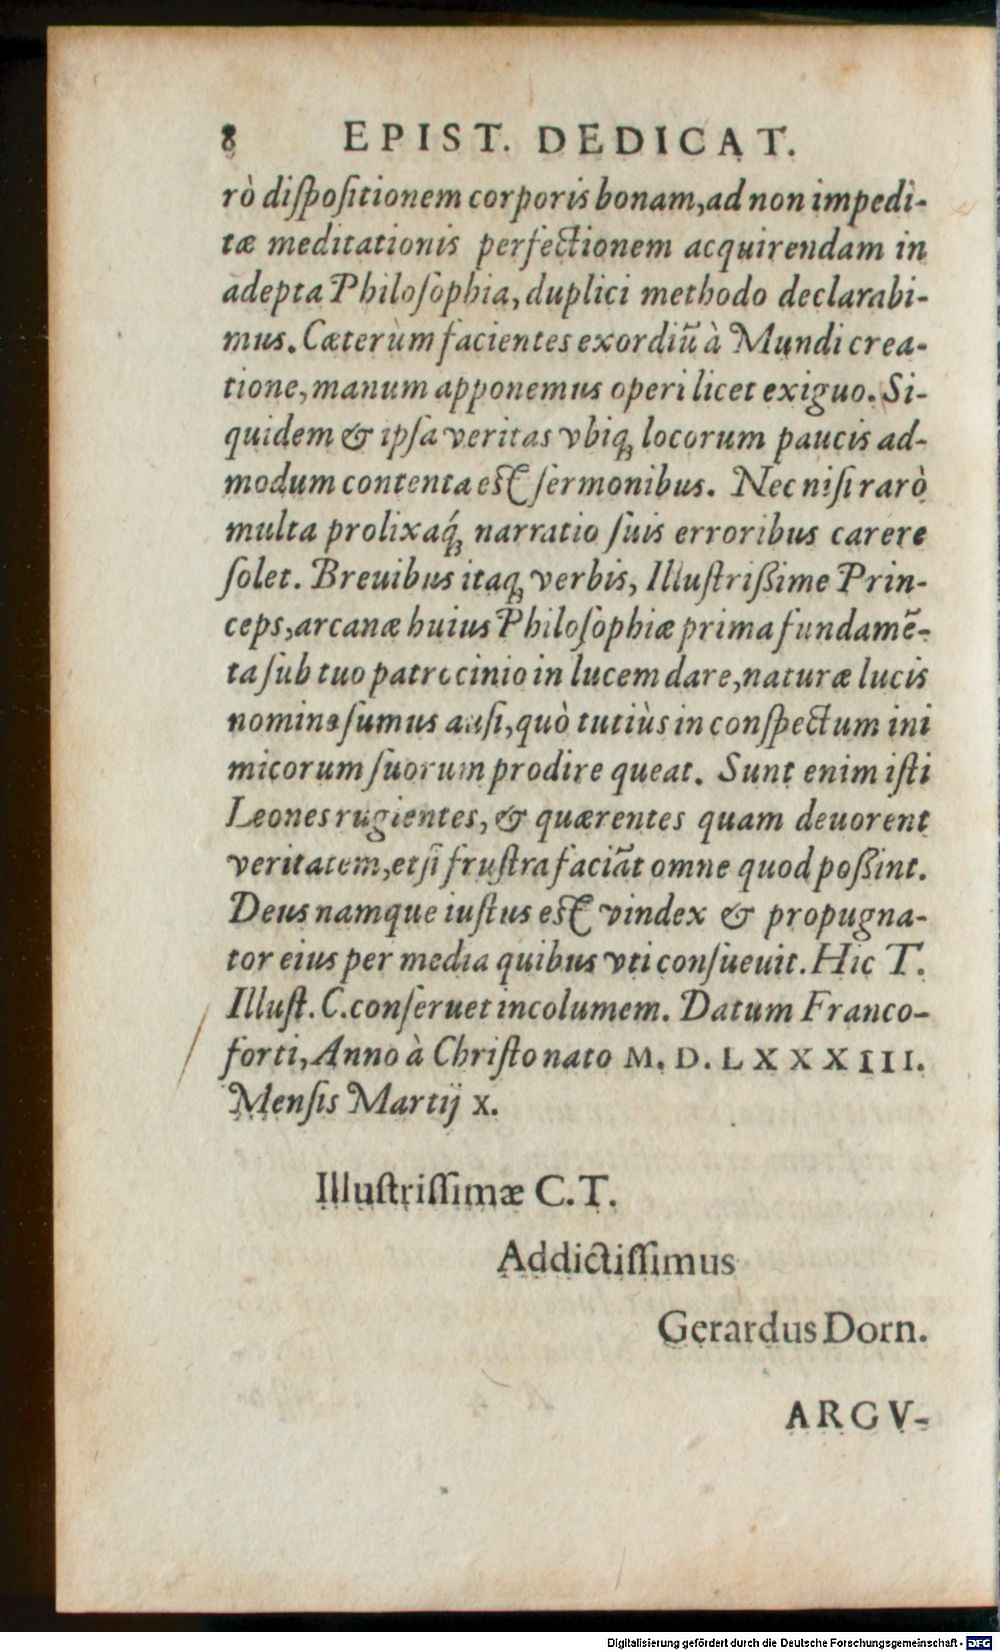 8 EPIST. DEDICAT.
rò diſpoſitionem corporis bonam, ad non impedi-
tæ meditationis perfectionem acquirendam in
adepta Philoſophia, duplici methodo declarabi-
mus. Cæterùm facientes exordiũ à Mundi crea-
tione, manum apponemus operi licet exiguo. Si-
quidem & ipſa veritas vbiq; locorum paucis ad-
modum contenta eſt ſermonibus. Nec niſi rarò
multa prolixaq́; narratio ſuis erroribus carere
ſolet. Breuibus itaq; verbis, Illuſtriſsime Prin-
ceps, arcanæ huius Philoſophiæ prima fundamẽ-
ta ſub tuo patrocinio in lucem dare, naturæ lucis
nomine ſumus auſi, quò tutiùs in conſpectum ini
micorum ſuorum prodire queat. Sunt enim iſti
Leones rugientes, & quærentes quam deuorent
veritatem, etſi fruſtra faciãt omne quod poſsint.
Deus namque iuſtus eſt vindex & propugna-
tor eius per media quibus vti conſueuit. Hic T.
Illuſt. C. conſeruet incolumem. Datum Franco-
forti, Anno à Chriſto nato M. D. LXXXIII.
Menſis Martij X.
Illuſtriſſimæ C. T.
Addictiſſimus
Gerardus Dorn.
ARGV-
Digitalisierung gefördert durch die Deutsche Forschungsgemeinschaft - DFG